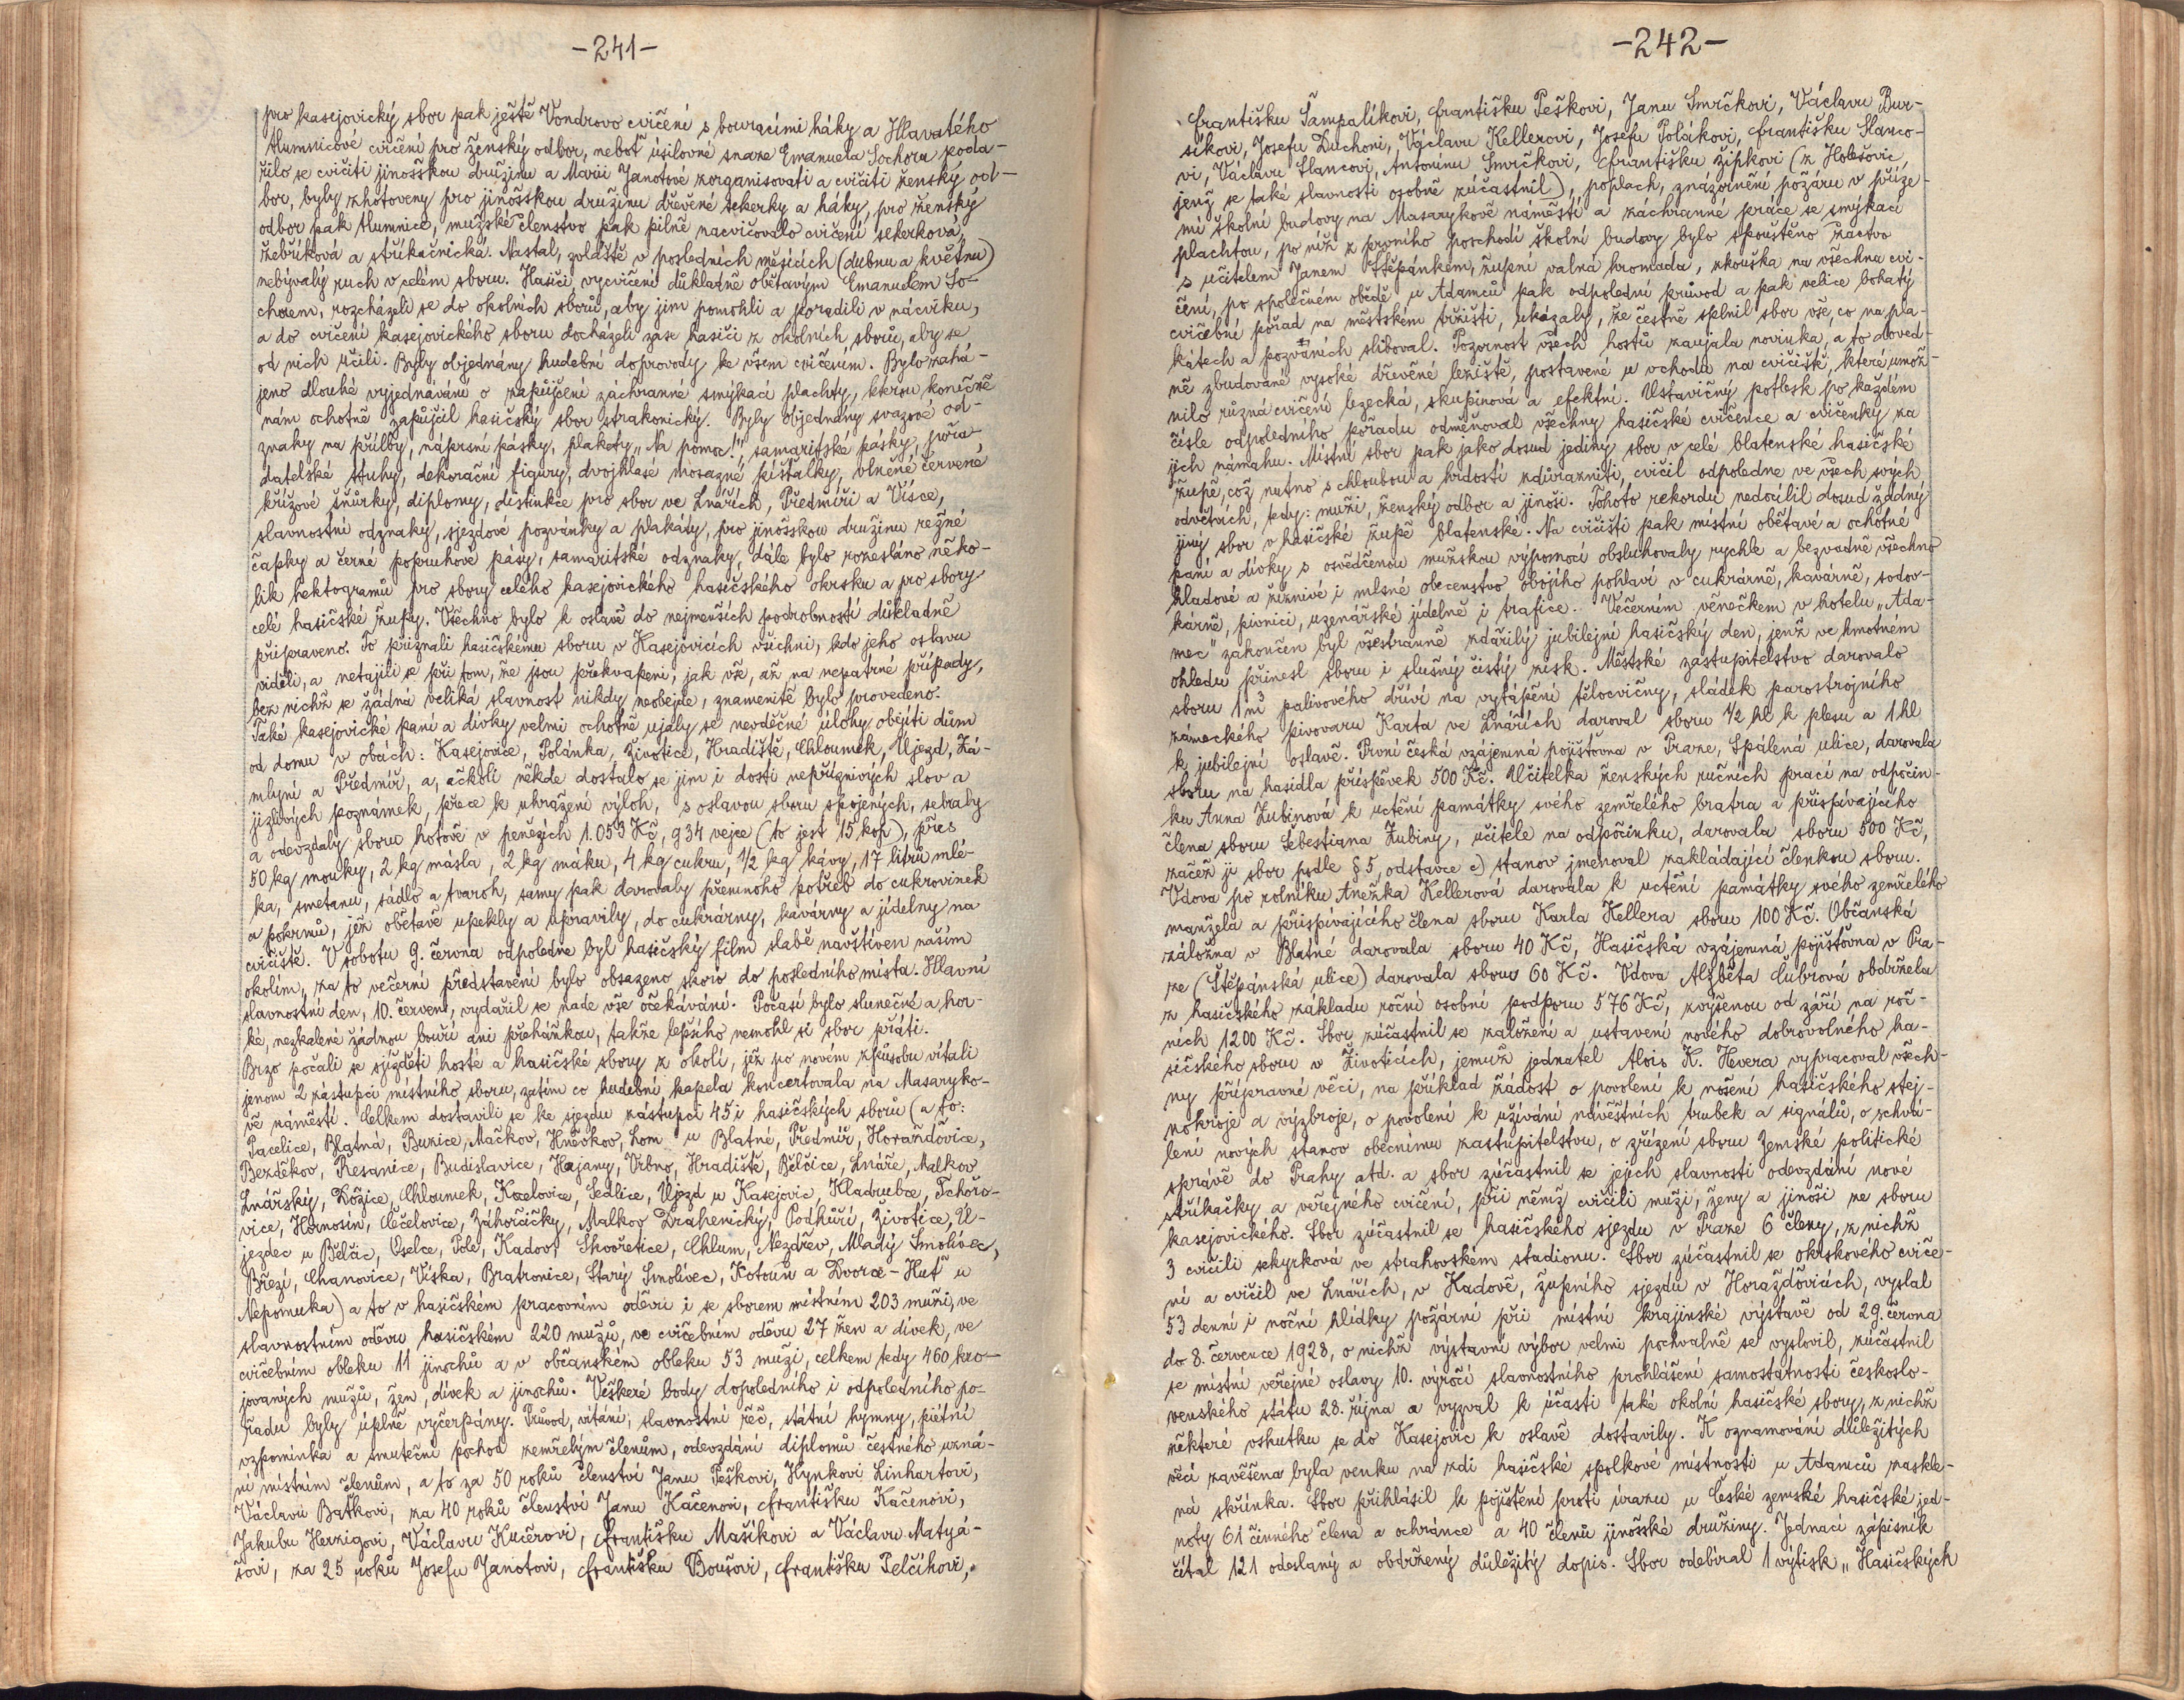 -241-
pro kasejovický sbor pak ještě Vondrovo cvičení s bouracími háky a Hlavatého
tlumnicové cvičení pro ženský odbor, neboť úsilovné snaze Emanuela Sochora poda-
řilo se cvičiti jinošskou družinu a Marii Janotové zorganisovati a cvičiti ženský od-
bor, byly zhotoveny pro jinošskou družinu dřevěné sekerky a háky, pro ženský
odbor pak tlumnice, mužské členstvo pak pilně nacvičovalo cvičení sekerková,
žebříková a stříkačnická. Nastal, zvláště v posledních měsících (dubnu a květnu)
nebývalý ruch v celém sboru. Hasiči, vycvičení důkladně obětavým Emanuelem So-
chorem, rozcházeli se do okolních sborů, aby jim pomohli a poradili v nácviku,
a do cvičení kasejovického sboru docházeli zase hasiči z okolních sborů, aby se
od nich učili. Byly objednány hudební doprovody ke všem cvičením. Bylo zahá-
jeno dlouhé vyjednávání o zapůjčení záchranné smýkací plachty, kterou konečně
nám ochotně zapůjčil hasičský sbor strakonický. Byly objednány svazové od-
znaky na přilby, náprsní pásky, plakety „Na pomoc!“, samaritské pásky, pořa-
datelské stuhy, dekorační figury, dvojhlasé mosazné píšťalky, vlněné červené
křížové šňůrky, diplomy, distinkce pro sbor ve Lnářích, Předmíři a Vísce,
slavnostní odznaky, sjezdové pozvánky a plakáty, pro jinošskou družinu režné
čapky a černé popruhové pásy, samaritské odznaky, dále bylo rozesláno něko-
lik hektogramů pro sbory celého kasejovického hasičského okrsku a pro sbory
celé hasičské župy. Všechno bylo k oslavě do nejmenších podrobností důkladně
připraveno. To přiznali hasičskému sboru v Kasejovicích všichni, kdo jeho oslavu
viděli, a netajili se při tom, že jsou překvapeni, jak vše, až na nepatrné případy,
bez nichž se žádná veliká slavnost nikdy neobejde, znamenitě bylo provedeno.
Také kasejovické paní a dívky velmi ochotně ujaly se nevděčné úlohy obejíti dům
od domu v obcích: Kasejovice, Polánka, Životice, Hradiště, Chloumek, Újezd, Zá-
mlyní a Předmíř, a, ačkoli někde dostalo se jim i dosti nepříznivých slov a
jizlivých poznámek, přece k uhražení výloh, s oslavou sboru spojených, sebraly
a odevzdaly sboru hotově v penězích 1.053 Kč, 934 vejce (to jest 15 kop), přes
50 kg mouky, 2 kg másla, 2 kg máku, 4 kg cukru, 1/2 kg kávy, 17 litrů mlé-
ka, smetanu, sádlo a tvaroh, samy pak darovaly přemnoho potřeb do cukrovinek
a pokrmů, jež obětavě upekly a upravily, do cukrárny, kavárny a jídelny na
cvičiště. V sobotu 9. června odpoledne byl hasičský film slabě navštíven naším
okolím, za to večerní představení bylo obsazeno skoro do posledního místa. Hlavní
slavnostní den, 10. červen, vydařil se nade vše očekávání. Počasí bylo slunečné a hor-
ké, nezkalené žádnou bouří ani přeháňkou, takže lepšího nemohl si sbor přáti.
Brzo počali se sjížděti hosté a hasičské sbory z okolí, jež po novém způsobu vítali
jenom 2 zástupci místního sboru, zatím co hudební kapela koncertovala na Masaryko-
vě náměstí. Celkem dostavili se ke sjezdu zástupci 45 i hasičských sborů (a to:
Pacelice, Blatná, Buzice, Mačkov, Hněvkov, Lom u Blatné, Předmíř, Horažďovice,
Bezděkov, Řesanice, Budislavice, Hajany, Vrbno, Hradiště, Bělčice, Lnáře, Malkov
Lnářský,Ložice, Chloumek, Kocelovice, Sedlice, Újezd u Kasejovic, Kladrubce, Tchořo-
vice, Hornosín, Čečelovice, Záhorčičky, Malkov Drahenický, Podhůří, Životice, Ú-
jezdec u Bělčic, Oselce, Pole, Kadov, Skvořetice, Chlum, Nezdřev, Mladý Smolivec,
Březí, Chanovice, Víska, Bratronice, Starý Smolivec, Kotouň a Dvorce-Huť u
Nepomuka) a to v hasičském pracovním oděvu i se sborem místním 203 muži, ve
slavnostním oděvu hasičském 220 mužů, ve cvičebním oděvu 27 žen a dívek, ve
cvičebním obleku 11 jinochů a v občanském obleku 53 muži, celkem tedy 460 kro-
jovaných mužů, žen, dívek a jinochů. Veškeré body dopoledního i odpoledního po-
řadu byly úplně vyčerpány. Průvod, vítání, slavnostní řeč, státní hymny, pietní
vzpomínka a smuteční pochod zemřelým členům, odevzdání diplomů čestného uzná-
ní místním členům, a to za 50 roků členství Janu Peškovi, Hynkovi Linhartovi,
Václavu Baťkovi, za 40 roků členství Janu Kačenovi, Františku Kačenovi,
Jakubu Herzigovi, Václavu Kučerovi, Františku Mašíkovi a Václavu Matyá-
šovi, za 25 roků Josefu Janotovi, Františku Boušovi, Františku Pelcíkovi,
-242-
Františku Šampalíkovi, Františku Peškovi, Janu Smrčkovi, Václavu Bur-
síkovi, Josefu Duchoni, Václavu Kellerovi, Josefu Polákovi, Františku Slanco-
vi, Václavu Slancovi, Antonínu Smrčkovi, Františku Žípkovi (z Holešovic,
jenž se také slavnosti osobně zúčastnil), poplach, znázornění požáru v příze-
mí školní budovy na Masarykově náměstí a záchranné práce se smýkací
plachtou, po níž z prvního poschodí školní budovy bylo spouštěno žactvo
s učitelem Janem Štěpánkem, župní valná hromada, zkouška na všechna cvi-
čení, po společném obědě u Adamců pak odpolední průvod a pak velice bohatý
cvičební pořad na městském tržišti, ukázaly, že čestně splnil sbor vše, co na pla-
kátech a pozváních sliboval. Pozornost všech hostů zaujala novinka, a to doved-
ně zbudované vysoké dřevěné leziště, postavené u vchodu na cvičiště, které umož-
nilo různá cvičení lezecká, skupinová a efektní. Ustavičný potlesk po každém
čísle odpoledního pořadu odměňoval všechny hasičské cvičence a cvičenky za
jich námahu. Místní sbor pak jako dosud jediný sbor v celé blatenské hasičské
župě, což nutno s chloubou a hrdostí zdůrazniti, cvičil odpoledne ve všech svých
odvětvích, tedy: muži, ženský odbor a jinoši. Tohoto rekordu nedocílil dosud žádný
jiný sbor v hasičské župě blatenské. Na cvičišti pak místní obětavé a ochotné
paní a dívky s osvědčenou mužskou výpomocí obsluhovaly rychle a bezvadně všechno
hladové a žíznivé i mlsné obecenstvo obojího pohlaví v cukrárně, kavárně, sodov-
kárně, pivnici, uzenářské jídelně i trafice. Večerním věnečkem v hotelu „Ada-
mec“ zakončen byl všestranně zdařilý jubilejní hasičský den, jenž ve hmotném
ohledu přinesl sboru i slušný čistý zisk. Městské zastupitelstvo darovalo
sboru 1 m³ palivového dříví na vytápění tělocvičny, sládek parostrojního
zámeckého pivovaru Karta ve Lnářích daroval sboru 1/2 hl k plesu a 1 hl
k jubilejní oslavě. První česká vzájemná pojišťovna v Praze, Spálená ulice, darovala
sboru na hasidla příspěvek 500 Kč. Učitelka ženských ručních prací na odpočin-
ku Anna Zubinová k uctění památky svého zemřelého bratra a přispívajícího
člena sboru Šebestiana Zubiny, učitele na odpočinku, darovala sboru 500 Kč,
začež ji sbor podle § 5, odstavce c) stanov jmenoval zakládající členkou sboru.
Vdova po rolníku Anežka Kellerová darovala k uctění památky svého zemřelého
manžela a přispívajícího člena sboru Karla Kellera sboru 100 Kč. Občanská
záložna v Blatné darovala sboru 40 Kč, Hasičská vzájemná pojišťovna v Pra-
ze (Štěpánská ulice) darovala sboru 60 Kč. Vdova Alžběta Čubrová obdržela
z hasičského základu roční osobní podporu 576 Kč, zvýšenou od září na roč-
ních 1200 Kč. Sbor zúčastnil se založení a ustavení nového dobrovolného ha-
sičského sboru v Životicích, jemuž jednatel Alois K. Hvera vypracoval všech-
ny přípravné věci, na příklad žádost o povolení k nošení hasičského stej-
nokroje a výzbroje, o povolení k užívání návěštních trubek a signálů, o schvá-
lení nových stanov obecnímu zastupitelstvu, o zřízení sboru Zemské politické
správě do Prahy atd. a sbor zúčastnil se jejich slavnosti odevzdání nové
stříkačky a veřejného cvičení, při němž cvičili muži, ženy a jinoši ze sboru
kasejovického. Sbor zúčastnil se hasičského sjezdu v Praze 6 členy, z nichž
3 cvičili sekyrková ve strahovském stadionu. Sbor zúčastnil se okrskového cviče-
ní a cvičil ve Lnářích, v Kadově, župního sjezdu v Horažďovicích, vyslal
53 denní i noční hlídky požární při místní krajinské výstavě od 29. června
do 8. července 1928, o nichž výstavní výbor velmi pochvalně se vyslovil, zúčastnil
se místní veřejné oslavy 10. výročí slavnostního prohlášení samostatnosti českoslo-
venského státu 28. října a vyzval k účasti také okolní hasičské sbory, z nichž
některé vskutku se do Kasejovic k oslavě dostavily. K oznamování důležitých
věcí zavěšena byla venku na zdi hasičské spolkové místnosti u Adamců zaskle-
ná skřínka. Sbor přihlásil k pojištění proti úrazu u České zemské hasičské jed-
noty 61 činného člena a ochránce a 40 členů jinošské družiny. Jednací zápisník
čítal 121 odeslaný a obdržený důležitý dopis. Sbor odebíral 1 výtisk „Hasičských